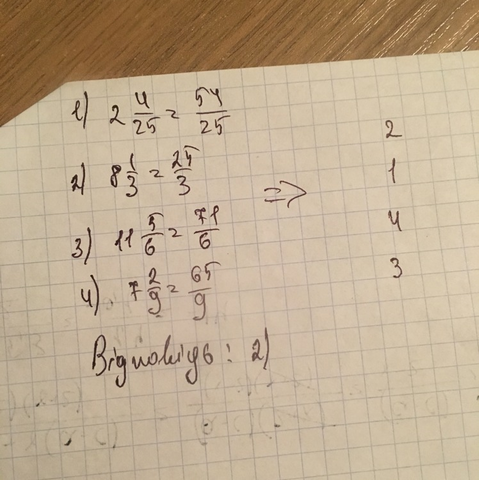 1) 2 4/25 = 54/25
2) 8 1/3 = 25/3
3) 11 5/6 = 71/6
4) 7 2/9 = 65/9
⇒
2
1
4
3
Відповідь: 2)